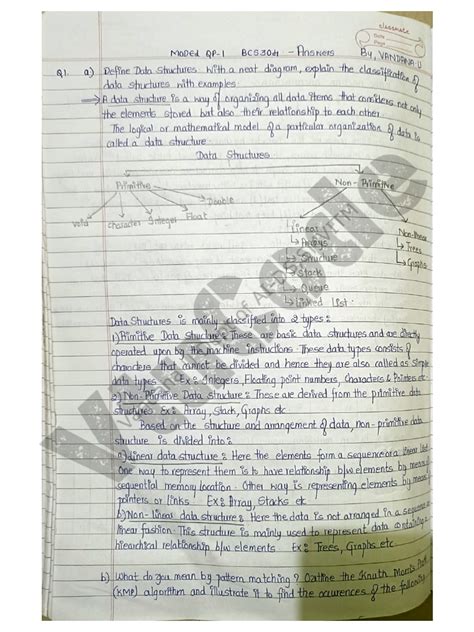 classmate
Date
Page
Model QP-1 BCS304 - Answers By, VANDANA U
Q1. a) Define Data Structures with a neat diagram, explain the classification of
data structures with examples.
→ A data structure is a way of organizing all data items that considers not only
the elements stored but also their relationship to each other.
The logical or mathematical model of a particular organization of data is
called a data structure.
Data Structures
Primitive Non-Primitive
void character Integer Float Double
Linear
Non-linear
↳ Arrays
↳ Trees
↳ Structure
↳ Graphs
↳ Stack
↳ Queue
↳ Linked List
Data Structures is mainly classified into 2 types:
1) Primitive Data Structure: These are basic data structures and are directly
operated upon by the machine instructions. These data types consists of
characters that cannot be divided and hence they are also called as Simple
data types. Ex: Integers, Floating point numbers, Characters & Pointers etc
2) Non-Primitive Data Structure: These are derived from the primitive data
structures Ex: Array, Stack, Graphs etc
Based on the structure and arrangement of data, non-primitive data
structure is divided into:
a) Linear data structure: Here the elements form a sequence or a linear list
One way to represent them is to have relationship b/w elements by means
sequential memory location. Other way is representing elements by means
pointers or links! Ex: Array, Stacks etc.
b) Non-linear data structure: Here the data is not arranged in a sequence
linear fashion. This structure is mainly used to represent data containing a
hierarchical relationship b/w elements Ex: Trees, Graphs etc
b) What do you mean by pattern matching? Outline the Knuth Morris
(KMP) algorithm and illustrate it to find the occurences of the following